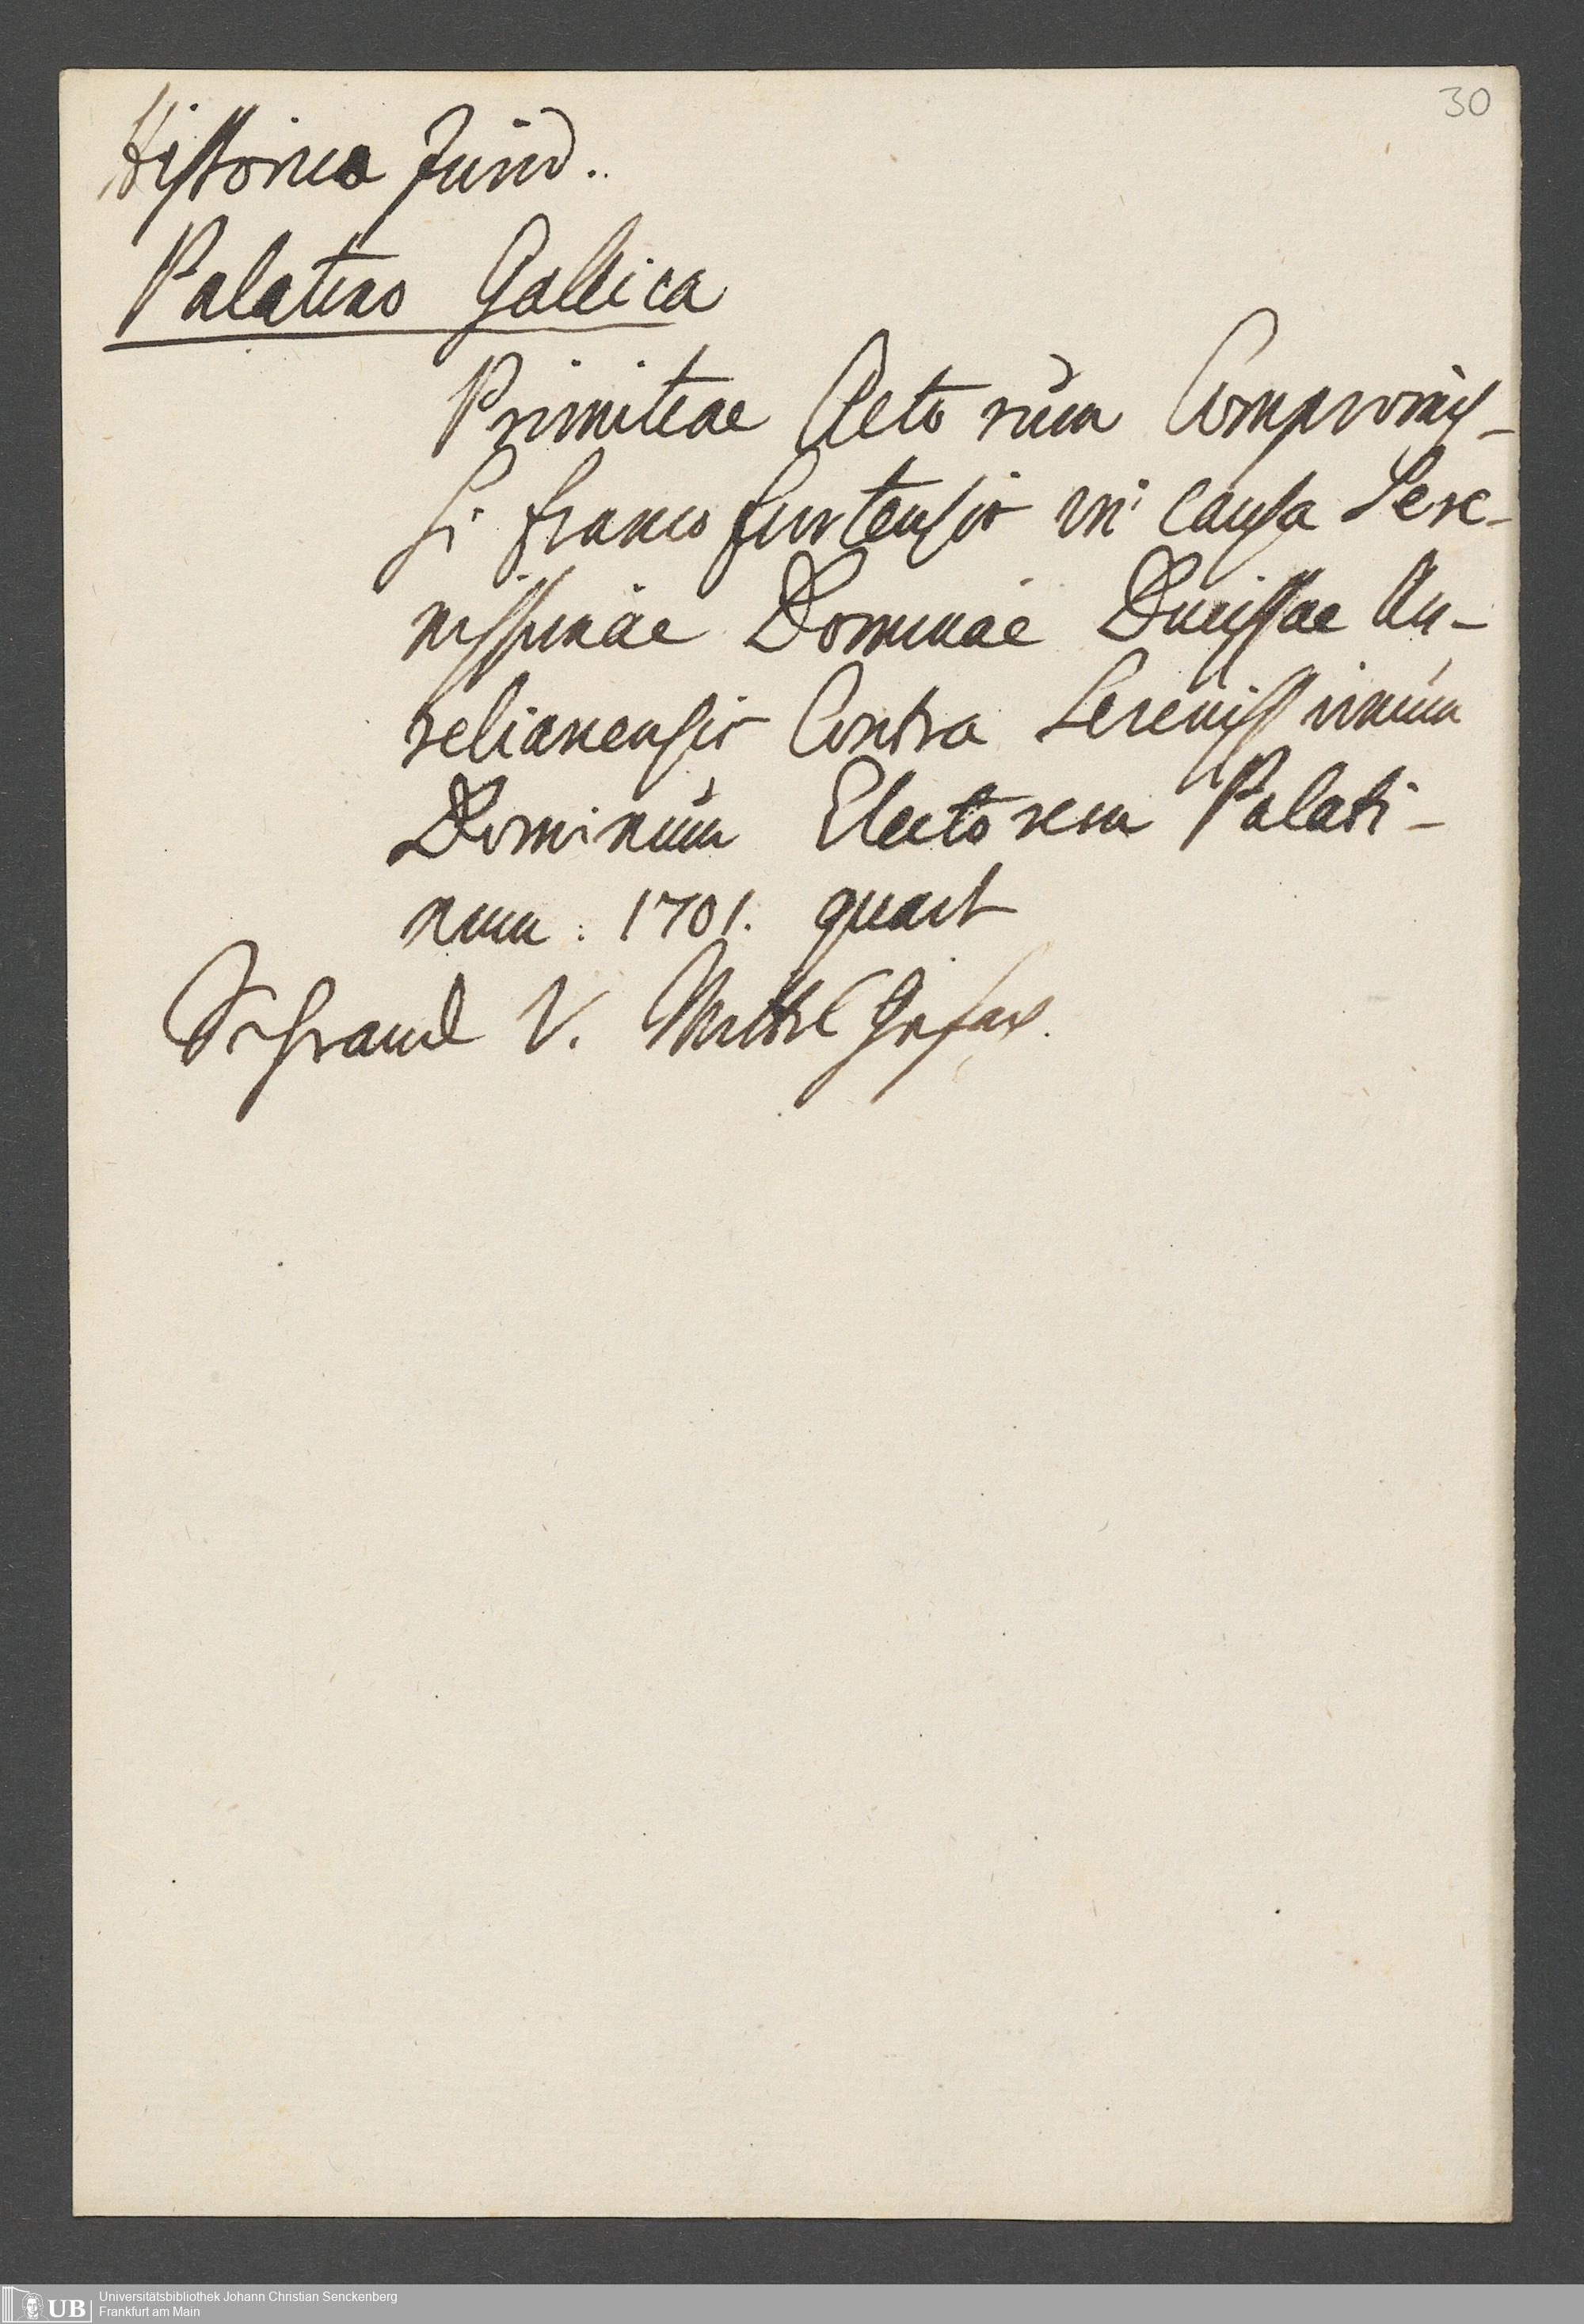 30
Historico Jurid.
Palatino Gallica
Primitiae Actorum Compromis-
si Francofurtensis in Causa Sere-
nissimae Dominae Ducissae Au-
relianensis Contra Serenissimum
Dominum Electorem Palati-
num. 1701. quart
Schranck V. Mittel
Universitätsbibliothek Johann Christian Senckenberg
UB Frankfurt am Main